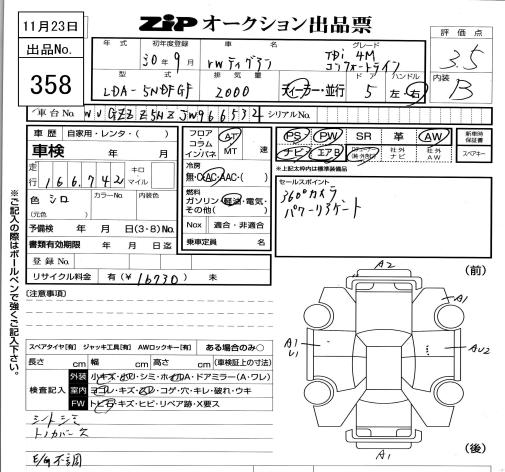 11月23日
出品No.
358
ZIP オークション出品票
評価点
3.5
内装
B
年式 初年度登録 車名 グレード
30年9月 VWティグアン TDi 4M コンフォートライン
型式 排気量 ドア ハンドル
LDA-5NDFGF 2000 ディーラー・並行 5 左・右
車台No. WVGZZZ5NZJW966532 シリアルNo.
車歴 自家用・レンタ( )
車検 年 月
走行 166,742 キロ マイル
色 シロ カラーNo. 内装色
(元色 )
予備検 年 月 日(3・8)No.
書類有効期限 年 月 日迄
登録No.
リサイクル料金 有(¥ 16730 ) 未
フロア コラム インパネ AT MT 速
冷房 無・C・AC・AAC・( )
燃料 ガソリン・軽油・電気・その他( )
Nox 適合・非適合
乗車定員 名
PS PW SR 革 AW 新車時保証書
ナビ エアB 社外ナビ 社外AW スペアキー
※上記太枠内は標準装備品
セールスポイント
360°カメラ
パワーリアゲート
※ご記入の際はボールペンで強くご記入下さい。
(注意事項)
スペアタイヤ[有] ジャッキ工具[有] AWロックキー[有] ある場合のみ○
長さ cm 幅 cm 高さ cm (車検証上の寸法)
検査記入
外装 小キズ・凹・シミ・ホイルA・ドアミラー(A・ワレ)
室内 ヨゴレ・キズ・スレ・コゲ・穴・キレ・破れ・ウキ
FW トビ石・キズ・ヒビ・リペア跡・X要ス
シートシミ
トノカバー欠
E/G不調
(前)
A2
A1
A1
U1
AU2
A1
(後)